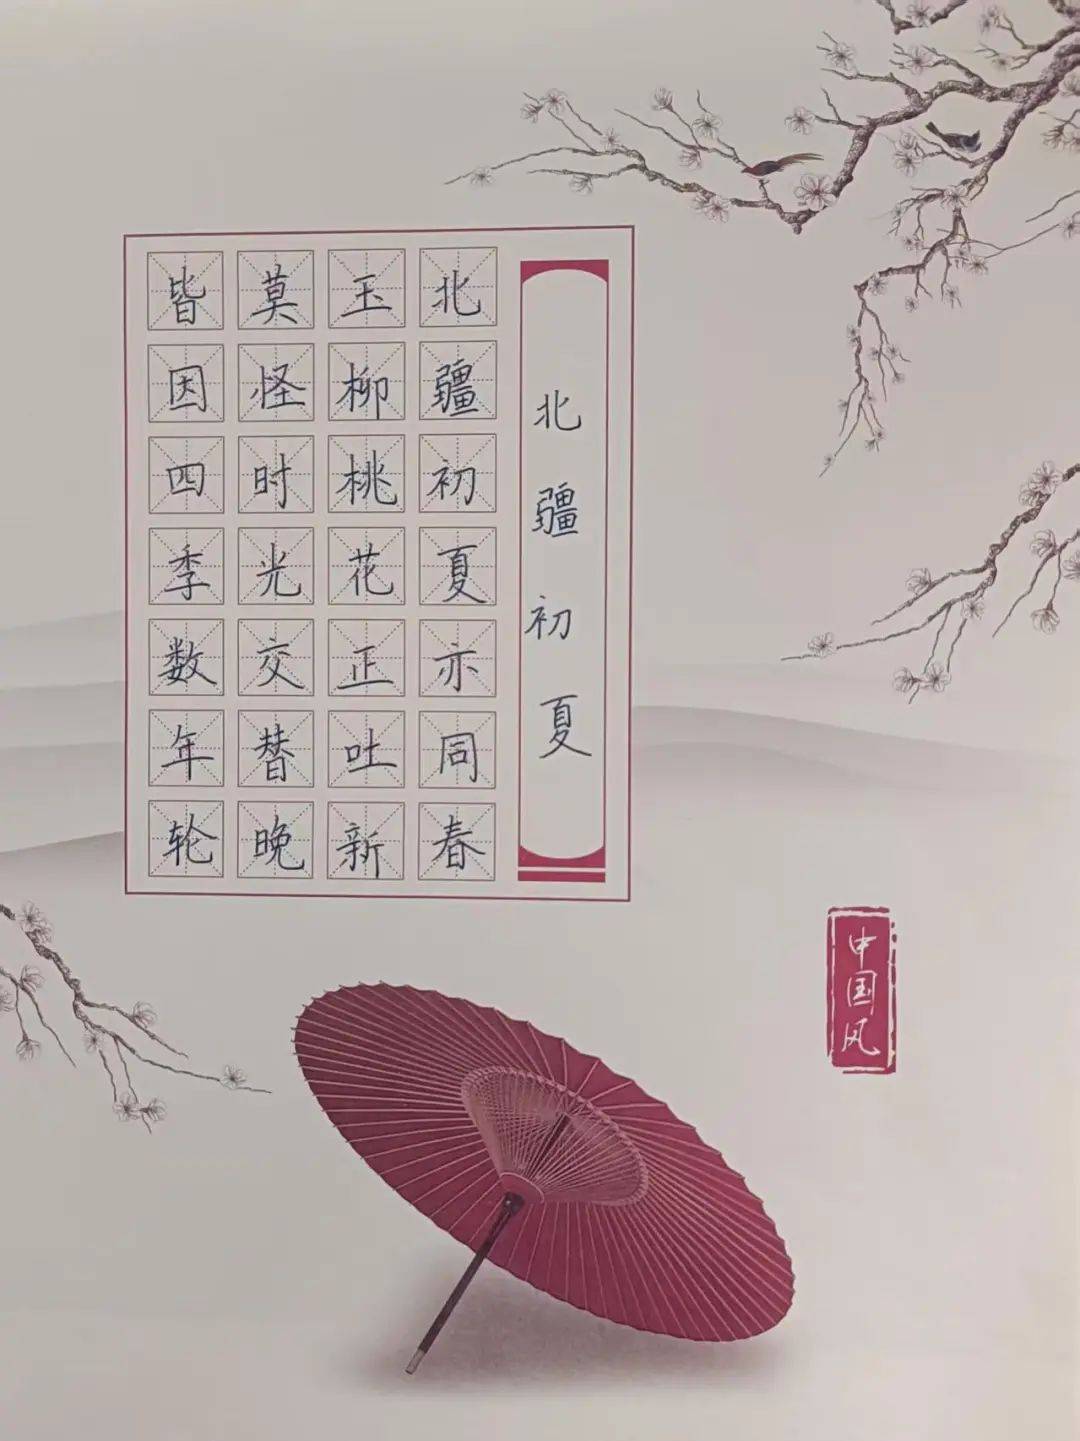 北疆初夏
北疆初夏示同春
玉柳桃花正吐新
莫怪时光交替晚
皆因四季数年轮
中国风